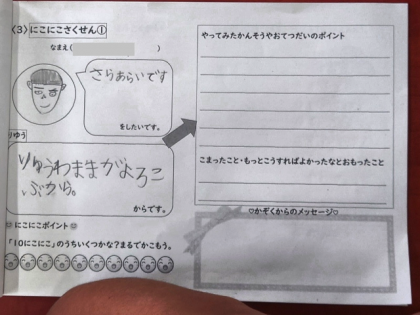 〈3〉にこにこさくせん①
なまえ( )
さらあらいです
をしたいです。
りゆう
りゅうわままがよろこ
ぶから。
からです。
にこにこポイント
「10にこにこ」のうちいくつかな?まるでかこもう。
やってみたかんそうやおてつだいのポイント
こまったこと・もっとこうすればよかったなとおもったこと
♡かぞくからのメッセージ♡